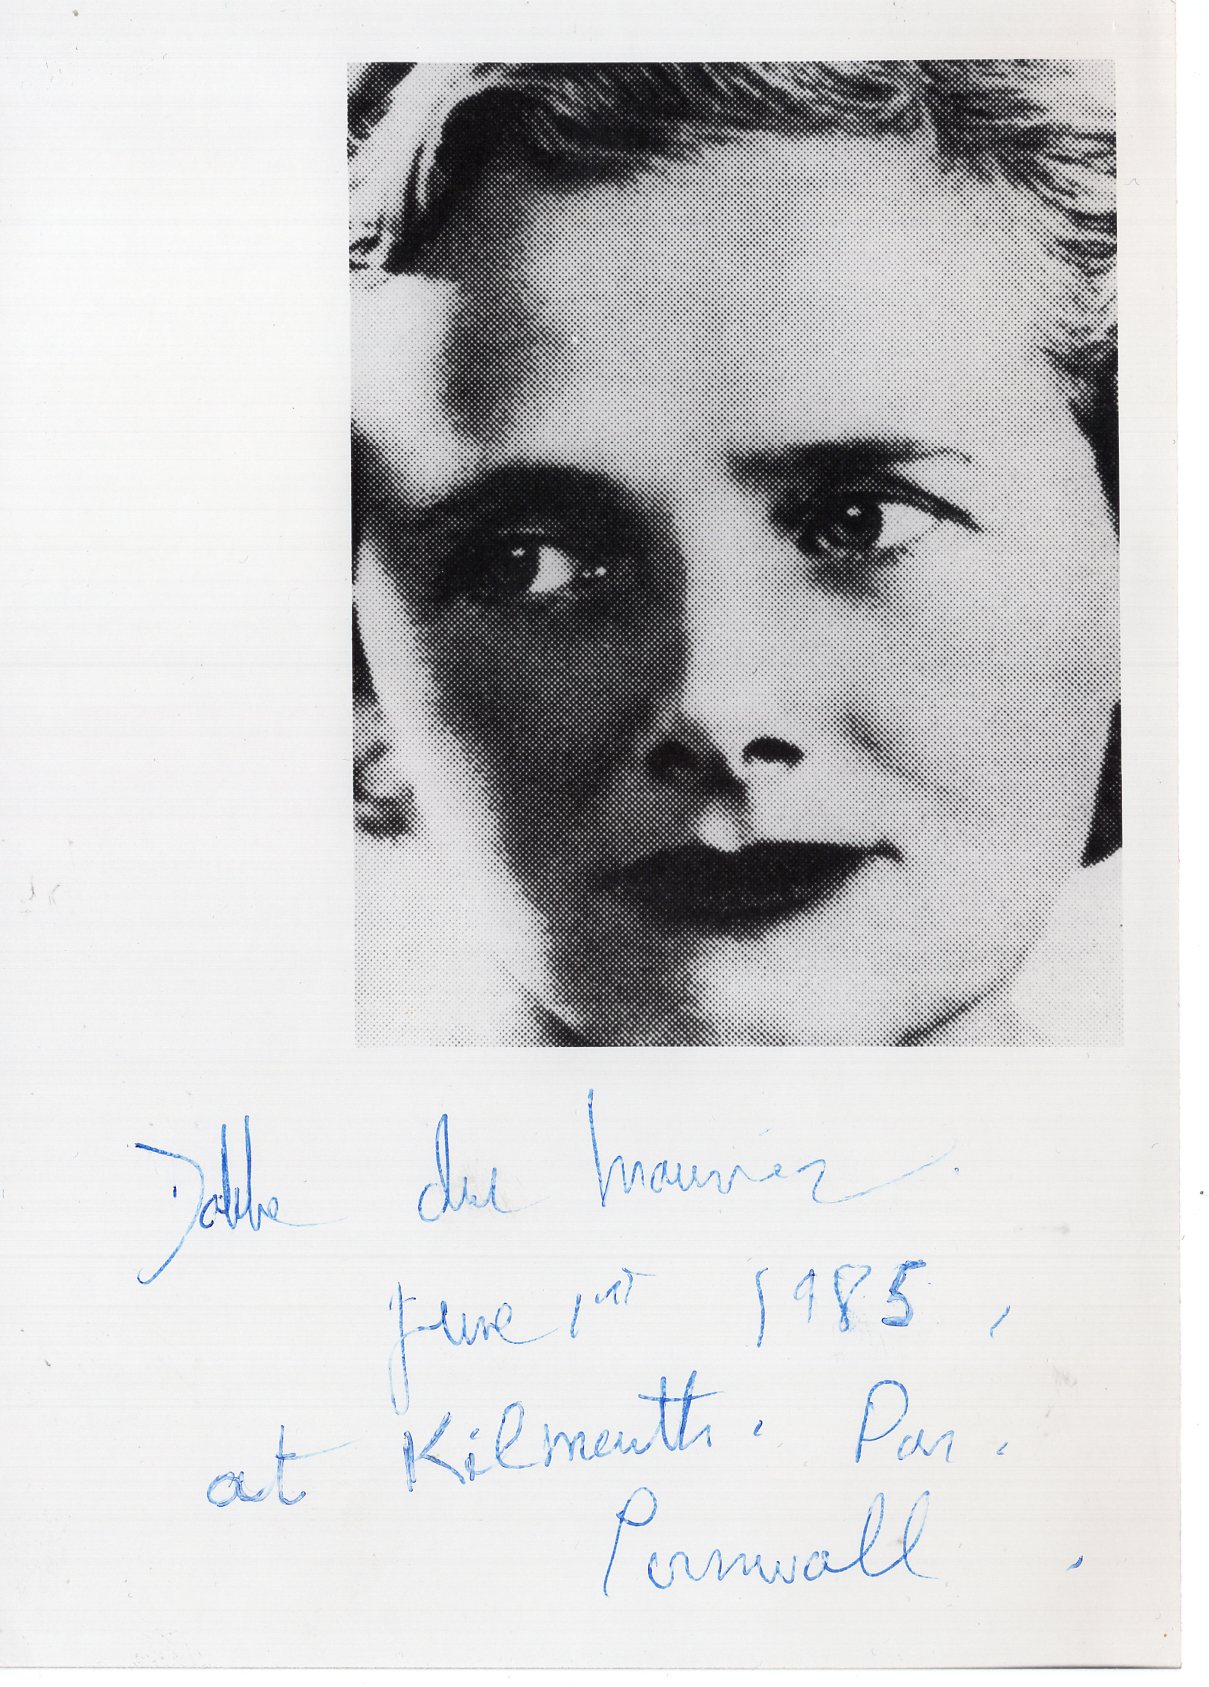 Dabbe du Maurier.
June 1st 1985.
at Kilmenth. Par.
Pornwall.